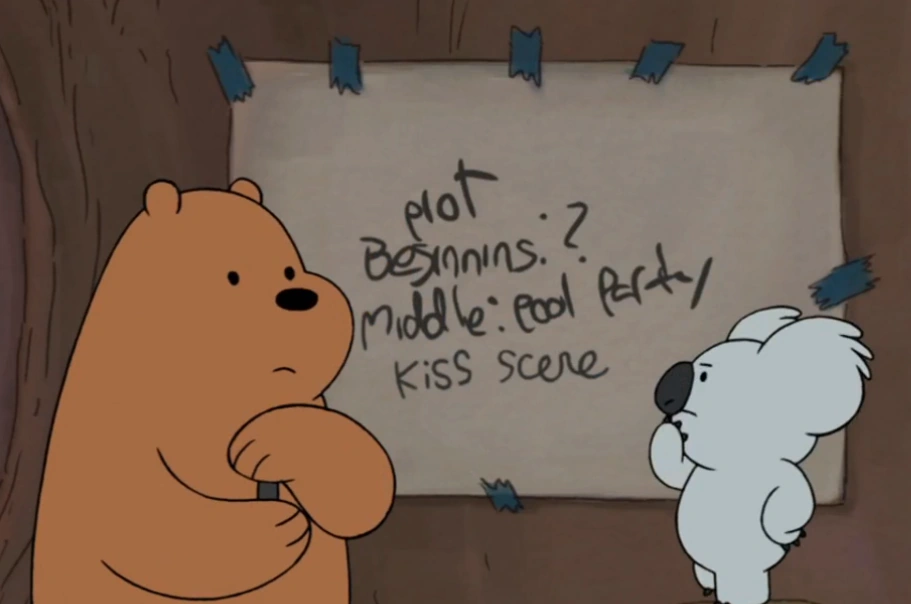 plot
Beginning: ?
Middle: pool party
Kiss scene